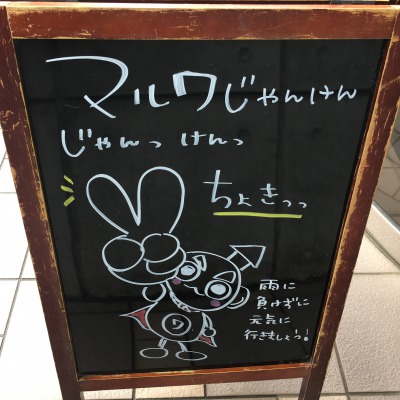 マルワじゃんけん
じゃんっ けんっ
ちょきっっ
雨に
負けずに
元気に
行きましょうっ!
ワ